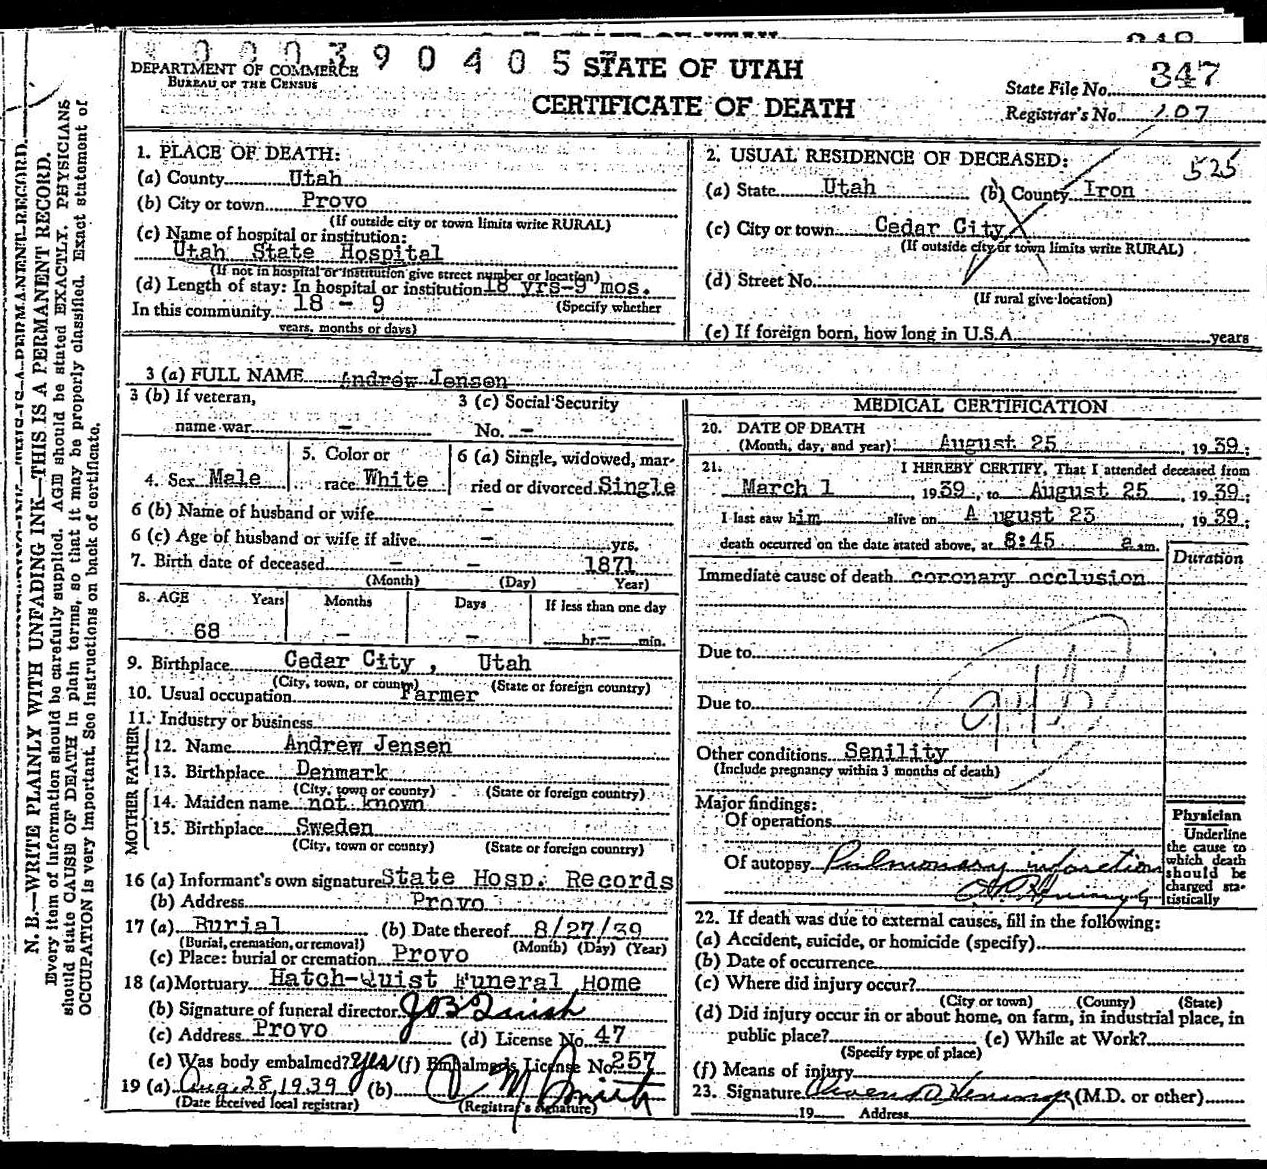 0 0 0 3 9 0 4 0 5
STATE OF UTAH
DEPARTMENT OF COMMERCE
BUREAU OF THE CENSUS
CERTIFICATE OF DEATH
State File No. 347
Registrar's No. 107
N. B.—WRITE PLAINLY WITH UNFADING INK—THIS IS A PERMANENT RECORD.
Every item of information should be carefully supplied. AGE should be stated EXACTLY. PHYSICIANS
should state CAUSE OF DEATH in plain terms, so that it may be properly classified. Exact statement of
OCCUPATION is very important. See instructions on back of certificate.
1. PLACE OF DEATH:
(a) County Utah
(b) City or town Provo
(If outside city or town limits write RURAL)
(c) Name of hospital or institution:
Utah State Hospital
(If not in hospital or institution give street number or location)
(d) Length of stay: In hospital or institution 18 yrs-9 mos.
In this community 18 - 9 (Specify whether
years, months or days)
2. USUAL RESIDENCE OF DECEASED: 525
(a) State Utah (b) County Iron
(c) City or town Cedar City
(If outside city or town limits write RURAL)
(d) Street No.
(If rural give location)
(e) If foreign born, how long in U.S.A. years
3 (a) FULL NAME Andrew Jensen
3 (b) If veteran,
name war -
3 (c) Social Security
No. -
4. Sex Male
5. Color or
race White
6 (a) Single, widowed, mar-
ried or divorced Single
6 (b) Name of husband or wife -
6 (c) Age of husband or wife if alive - yrs.
7. Birth date of deceased - - 1871
(Month) (Day) Year)
8. AGE Years Months Days If less than one day
68 - - hr. - min.
9. Birthplace Cedar City, Utah
(City, town, or county) (State or foreign country)
10. Usual occupation Farmer
11. Industry or business
FATHER
12. Name Andrew Jensen
13. Birthplace Denmark
(City, town or county) (State or foreign country)
MOTHER
14. Maiden name not known
15. Birthplace Sweden
(City, town or county) (State or foreign country)
16 (a) Informant's own signature State Hosp. Records
(b) Address Provo
17 (a) Burial (b) Date thereof 8/27/39
(Burial, cremation, or removal) (Month) (Day) (Year)
(c) Place: burial or cremation Provo
18 (a) Mortuary Hatch-Quist Funeral Home
(b) Signature of funeral director
(c) Address Provo (d) License No. 47
(e) Was body embalmed? Yes (f) Embalmer's License No. 257
19 (a) Aug. 28, 1939 (b)
(Date received local registrar) (Registrar's signature)
MEDICAL CERTIFICATION
20. DATE OF DEATH
(Month, day, and year) August 25, 1939;
21. I HEREBY CERTIFY, That I attended deceased from
March 1, 1939, to August 25, 1939;
I last saw him alive on A ugust 23, 1939;
death occurred on the date stated above, at 8:45 a.m.
Duration
Immediate cause of death coronary occlusion
Due to
Due to
Other conditions Senility
(Include pregnancy within 3 months of death)
Major findings:
Of operations
Of autopsy Pulmonary infarction
Physician
Underline
the cause to
which death
should be
charged sta-
tistically
22. If death was due to external causes, fill in the following:
(a) Accident, suicide, or homicide (specify)
(b) Date of occurrence
(c) Where did injury occur?
(City or town) (County) (State)
(d) Did injury occur in or about home, on farm, in industrial place, in
public place? (e) While at Work?
(Specify type of place)
(f) Means of injury
23. Signature (M.D. or other)
19 Address